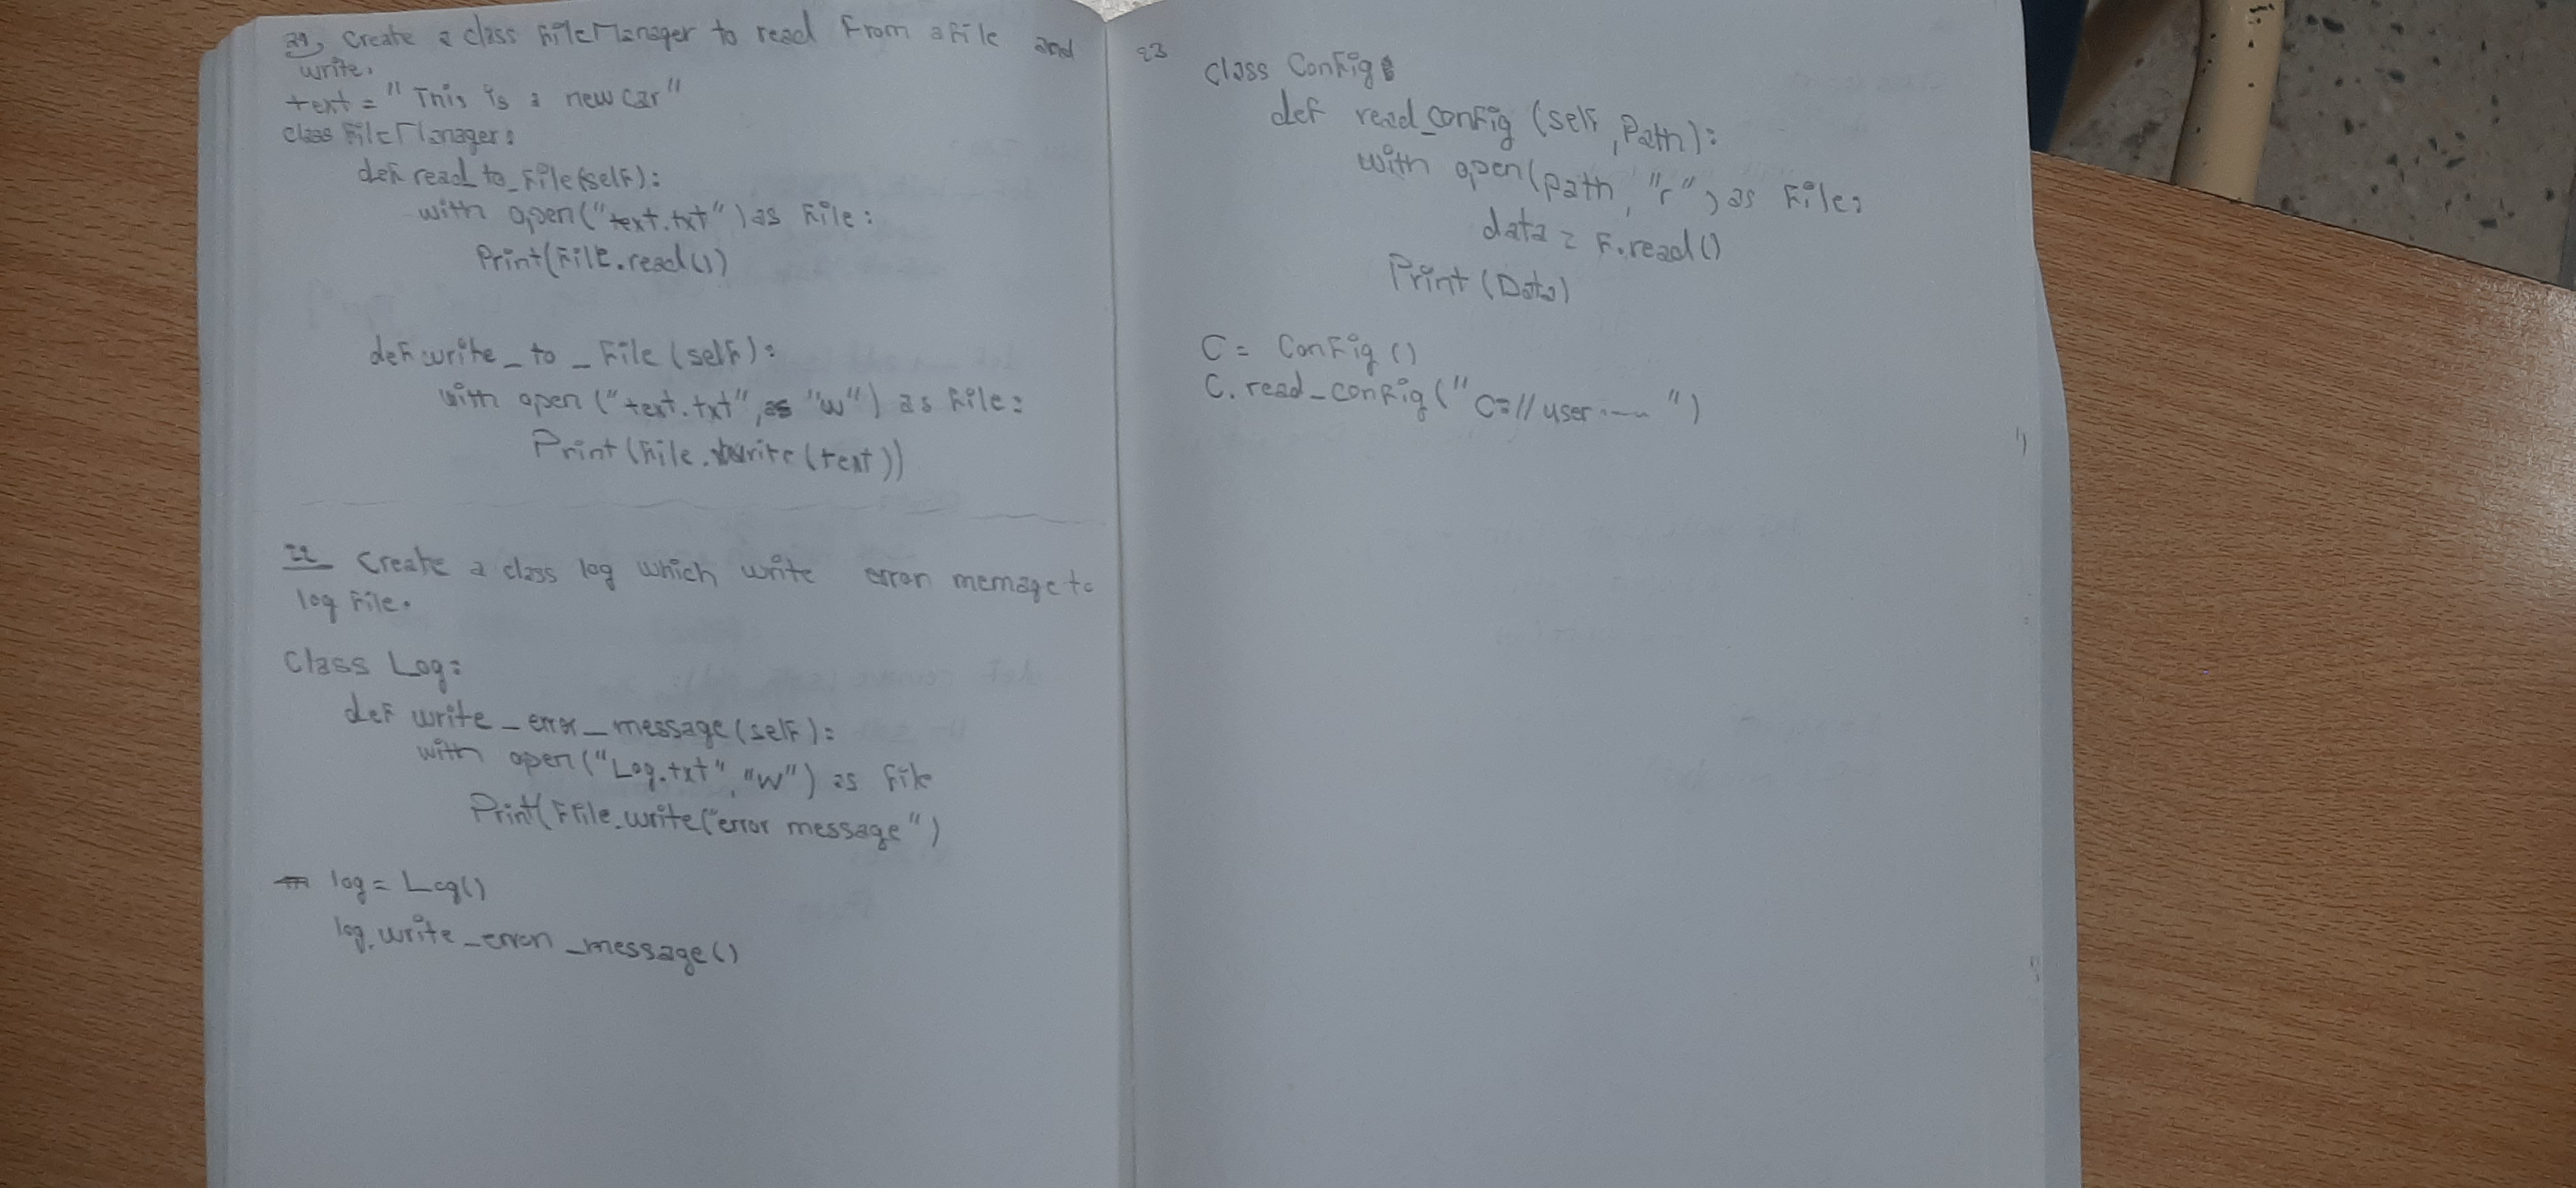 21, Create a class FileManager to read from a file and
write.
text = "This is a new car"
class FileManager:
def read_to_file(self):
with open("text.txt") as file:
Print(file.read())
def write_to_file(self):
with open("text.txt", "w") as file:
Print(file.write(text))
22 Create a class log which write error message to
log file.
Class Log:
def write_error_message(self):
with open("Log.txt", "w") as file
Print(file.write("error message")
log = Log()
log.write_error_message()
23
Class Config:
def read_config (self, Path):
with open(path, "r") as file:
data = f.read()
Print (Data)
C = Config ()
C.read_config ("C://user.... ")